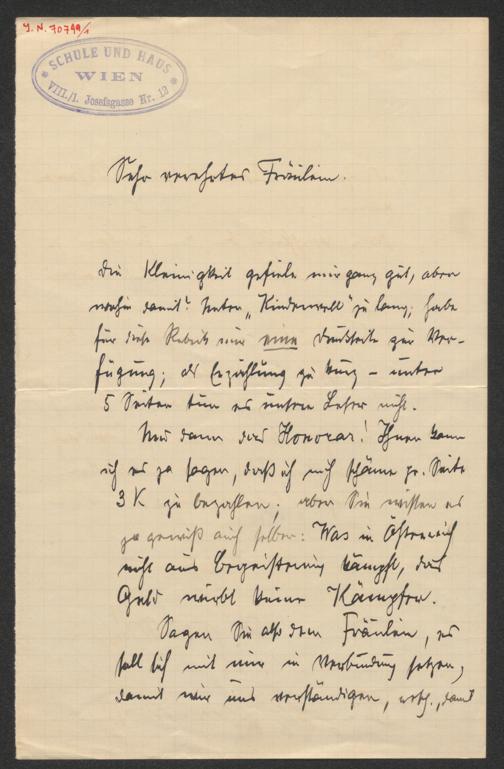 J. N. 70799/1
SCHULE UND HAUS
WIEN
VIII./1. Josefsgasse Nr. 12
Sehr verehrtes Fräulein.
Die Kleinigkeit gefiele mir ganz gut, aber
wohin damit? Unter „Kinderwelt" zu lang; habe
für diese Rubrik nur eine Druckseite zur Ver-
fügung; als Erzählung zu kurz – unter
5 Seiten tun es unsere Leser nicht.
Und dann das Honorar! Ihnen kann
ich es ja sagen, daß ich mich schäme pr. Seite
3 K zu bezahlen; aber Sie wissen es
ja gewiß auch selber: Was in Österreich
nicht aus Begeisterung kämpft, das
Geld wirbt keine Kämpfer.
Sagen Sie also dem Fräulein, es
soll sich mit mir in Verbindung setzen,
damit wir uns verständigen, damit